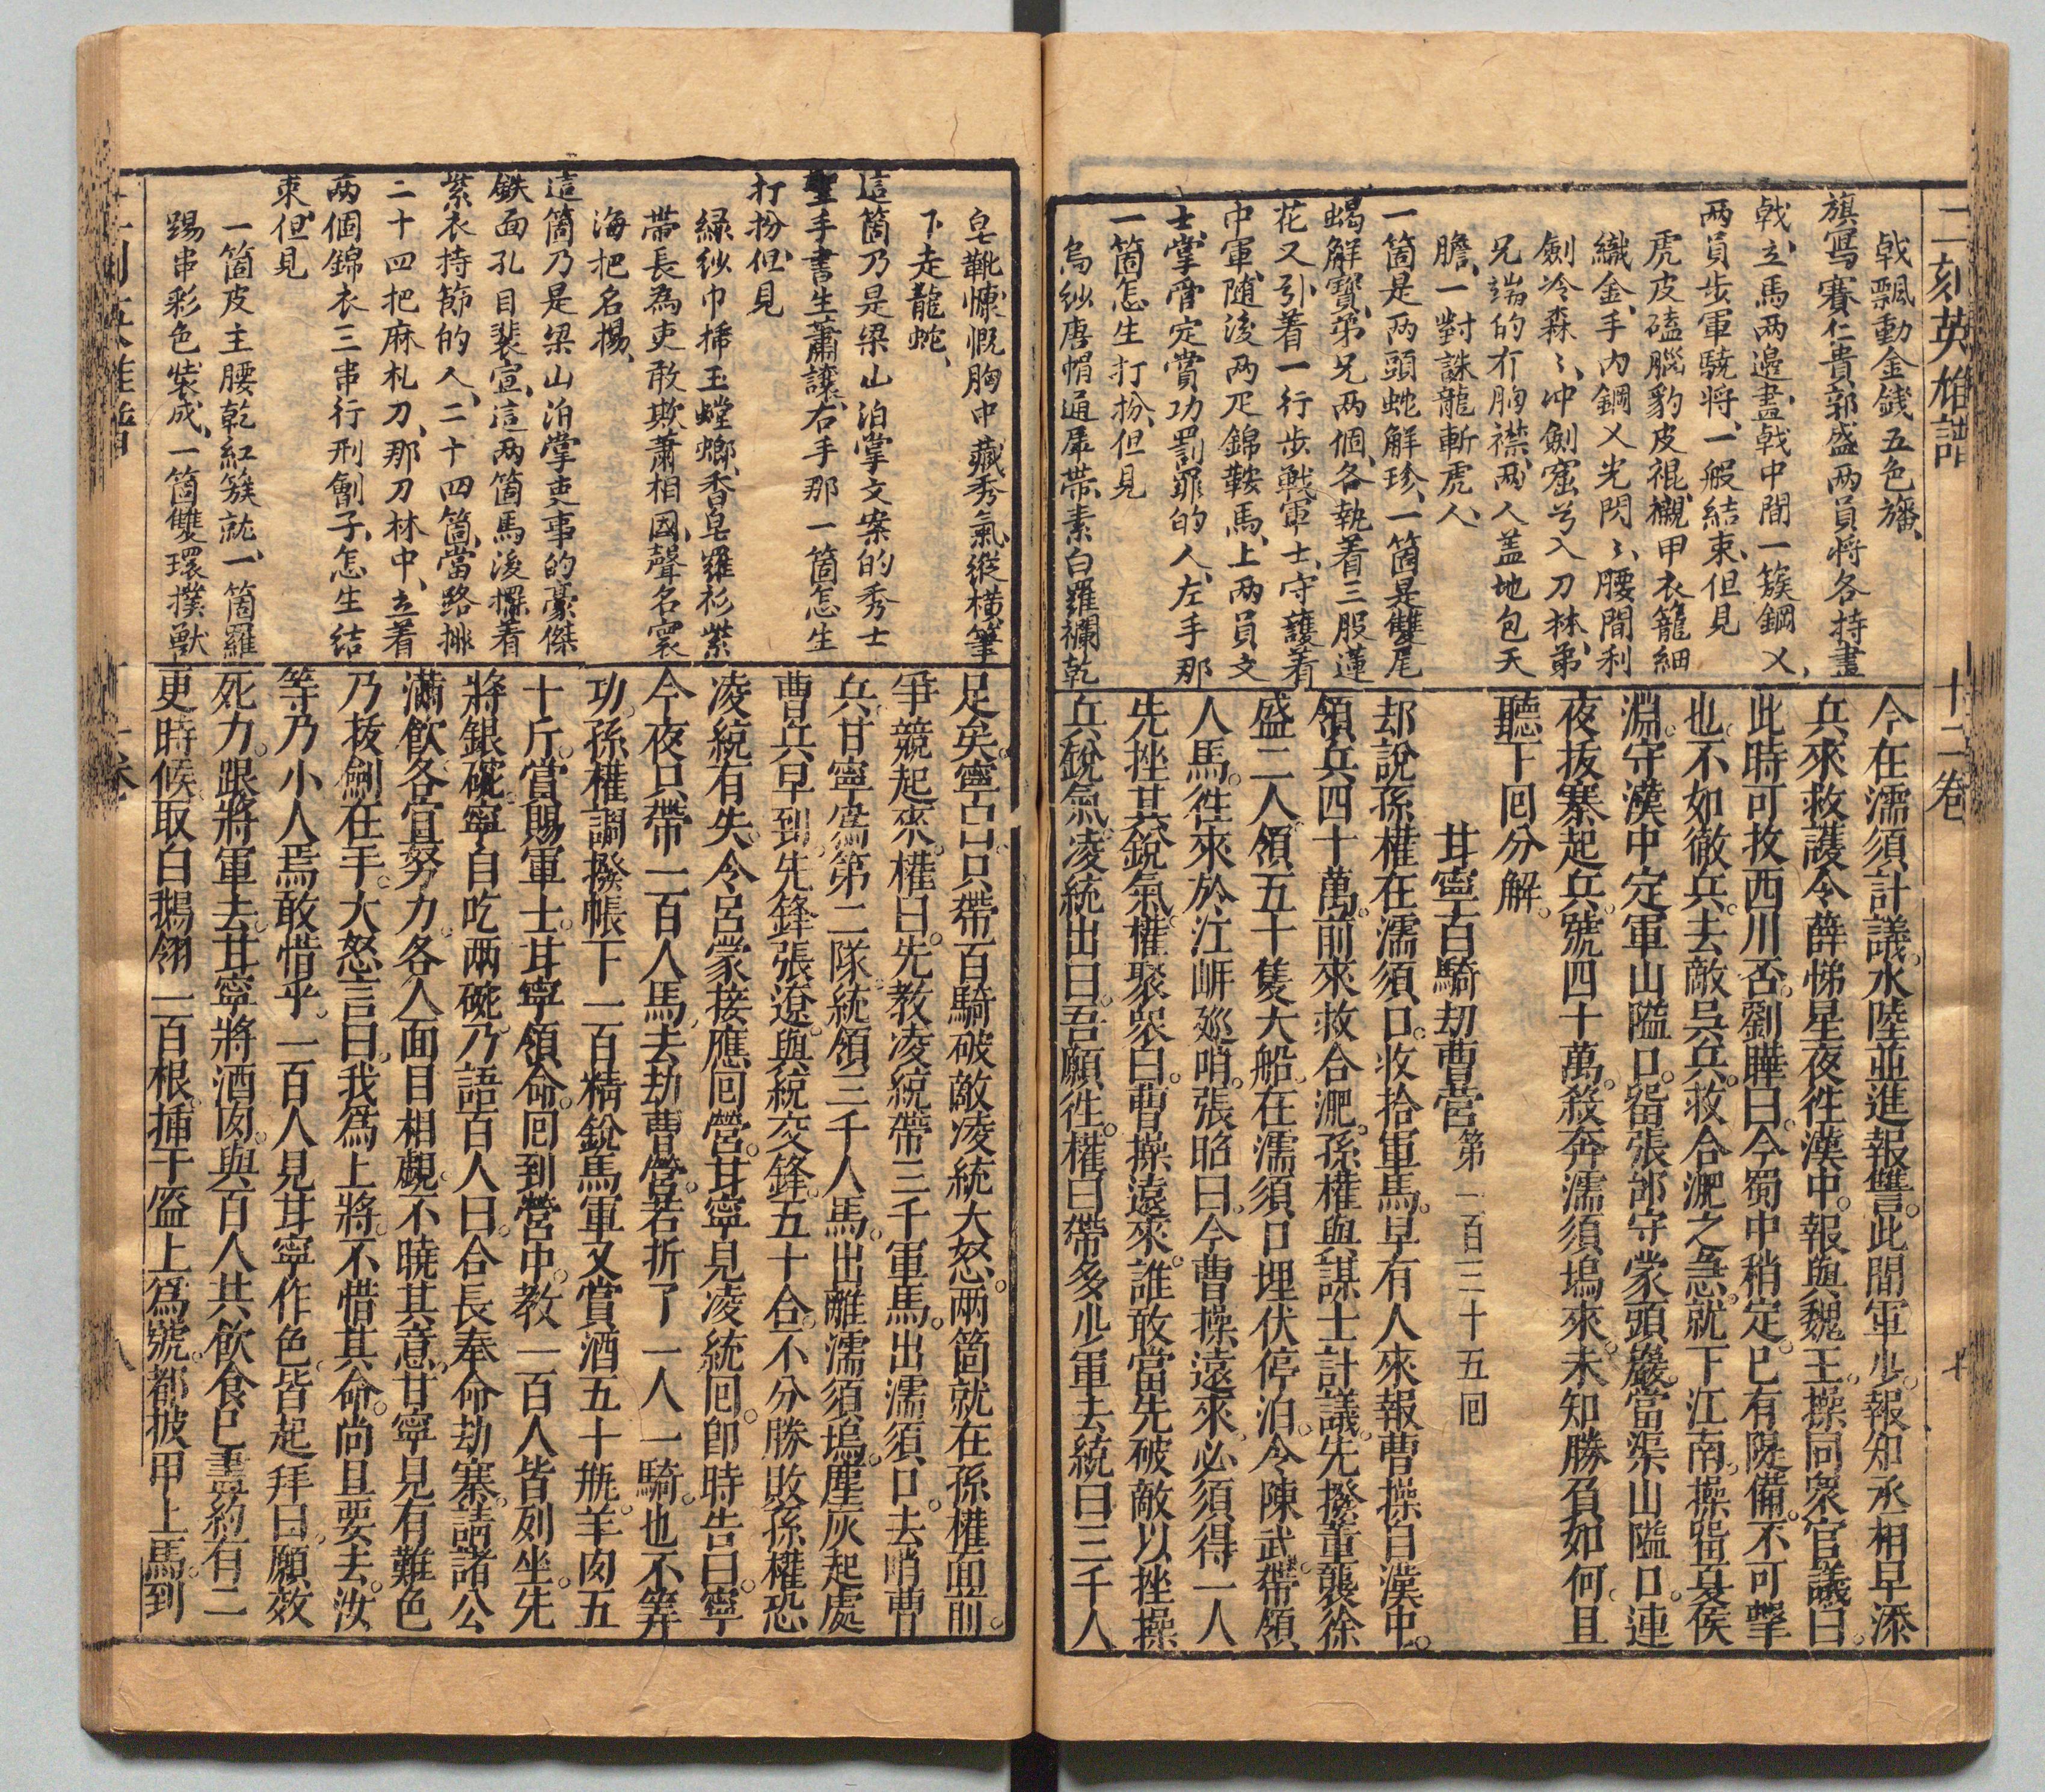 二刻英雄譜
十二卷
十
戟飄動金錢五色旛、
旗寫賽仁貴郭盛兩員將各持畫
戟、立馬兩邊、畫戟中間一簇鋼乂、
兩員步軍驍將、一般結束、但見
虎皮磕腦豹皮裩、襯甲衣籠細
織金、手內鋼乂光閃〻、腰間利
劍冷森〻、冲劍窟兮入刀林、弟
兄端的冇胸襟、兩人蓋地包天
膽、一對誅龍斬虎人、
一箇是兩頭蛇解珍、一箇是雙尾
蝎解寶、弟兄兩個、各執着三股蓮
花乂引着一行步戰軍士、守護着
中軍、随後兩疋錦鞍馬、上兩員文
士、掌管定賞功罰罪的人、左手那
一箇怎生打扮、但見
烏紗唐帽通犀帶、素白羅襴乾
今在濡須計議。水陸並進報讐。此間軍少。報知丞相早添
兵來救護。令薛悌星夜徃漢中。報與魏王。操同衆官議曰。
此時可救西川否。劉曄曰。今蜀中稍定。已有隄備。不可擊
也。不如徹兵。去敵吳兵。救合淝之急。就下江南。操畱夏侯
淵。守漢中定軍山隘口。畱張郃守蒙頭巖。當渠山隘口。連
夜拔寨起兵。號四十萬。殺奔濡須塢來。未知勝負如何。且
聽下囘分解。
甘寧百騎刧曹營 第一百三十五囘
却說孫權在濡須口。收拾軍馬。早有人來報曹操自漢中。
領兵四十萬。前來救合淝。孫權與謀士計議。先撥董襲徐
盛二人。領五十隻大船。在濡須口埋伏停泊。令陳武。帶領
人馬。徃來於江岍廵哨。張昭曰。今曹操遠來。必須得一人
先挫其銳氣。權聚衆曰。曹操遠來。誰敢當先破敵以挫操
兵銳氣。凌統出曰。吾願徃。權曰帶多少軍去。統曰三千人
皂靴慷慨胸中藏秀氣、縱橫筆
下走龍蛇、
這箇乃是梁山泊掌文案的秀士
聖手書生蕭讓、右手那一箇怎生
打扮、但見
綠紗巾揷玉螳螂、香皂羅衫紫
帶長為吏敢欺蕭相國、聲名寰
海把名揚、
這箇乃是梁山泊掌吏事的豪傑
鉄面孔目裴宣、這兩箇馬後擺着
紫衣持節的人、二十四箇、當路排
二十四把麻札刀、那刀林中、立着
兩個錦衣三串行刑劊子、怎生結
束、但見
一箇皮主腰乾紅簇就、一箇羅
踢串彩色裝成、一箇雙環撲獸
足矣。寧曰。只帶百騎破敵。凌統大怒。兩箇就在孫權面前。
爭競起來。權曰。先教凌統帶三千軍馬。出濡須口。去哨曹
兵。甘寧爲第二隊。統領三千人馬。出離濡須塢。塵灰起處
曹兵早到。先鋒張遼。與統交鋒。五十合。不分勝敗。孫權恐
凌統有失。令呂蒙接應回營。甘寧見凌統囘。即時告曰。寧
今夜只帶一百人馬。去劫曹營。若折了一人一騎。也不筭
功。孫權調撥帳下一百精銳馬軍。又賞酒五十瓶。羊肉五
十斤。賞賜軍士。甘寧領命。囘到營中。教一百人皆列坐。先
將銀碗。寧自吃兩碗。乃語百人曰。合長奉命劫寨。請諸公
滿飲。各宜努力。各人面目相覷。不曉其意。甘寧見有難色
乃拔劍在手。大怒言曰。我爲上將。不惜其命。尚且要去。汝
等乃小人。焉敢惜乎。一百人見甘寧作色。皆起拜曰。願效
死力。跟將軍去。甘寧將酒肉。與百人共飲食巳盡。約有二
更時候。取白鵝翎一百根。揷于盔上爲號。都披甲上馬。到